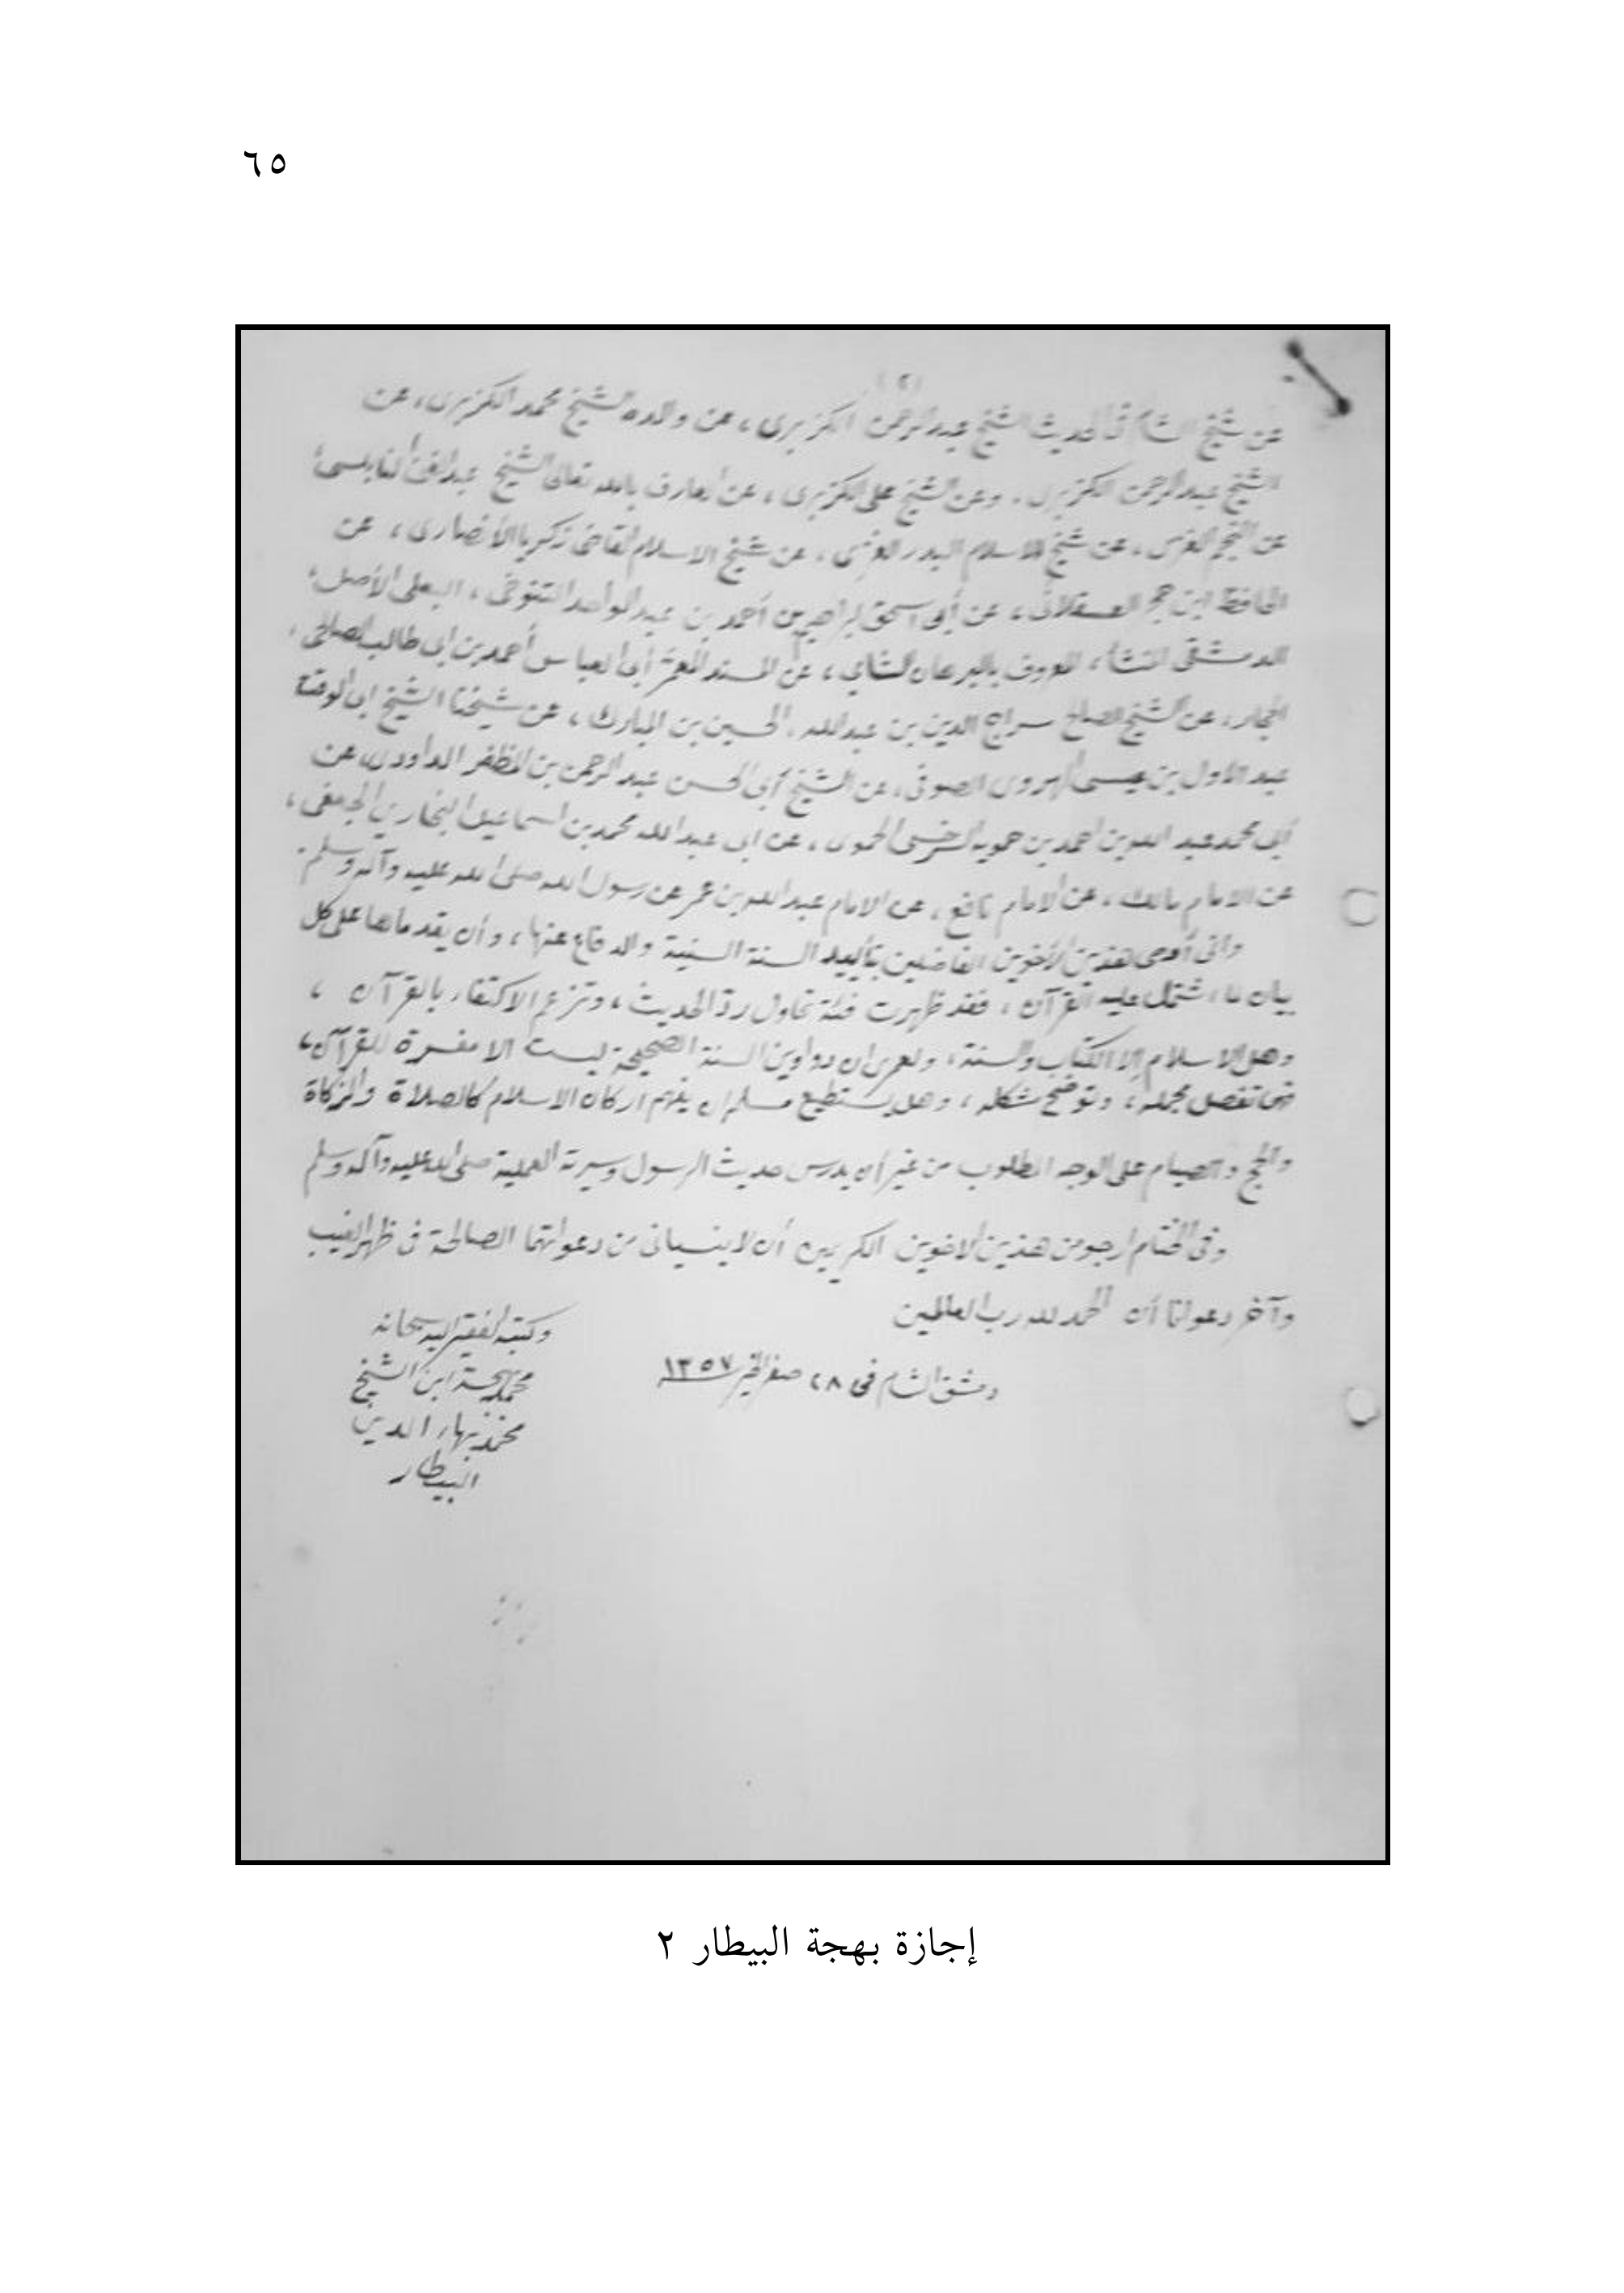 ٦٥
(٢)
عن شيخ الشام في الحديث الشيخ عبد الرحمن الكزبري، عن والده الشيخ محمد الكزبري، عن
الشيخ عبد الرحمن الكزبري. وعن الشيخ علي الكزبري، عن العارف بالله تعالى الشيخ عبد الغني النابلسي،
عن النجم الغزي، عن شيخ الاسلام البدر الغزي، عن شيخ الاسلام القاضي زكريا الأنصاري، عن
الحافظ ابن حجر العسقلاني، عن أبي اسحق ابراهيم بن أحمد بن عبد الواحد التنوخي، البعلي الأصل،
الدمشقي المنشأ، المعروف بالبرهان الشامي، عن المسند المعمر أبي العباس أحمد بن ابي طالب الصالحي،
الحجار، عن الشيخ الصالح سراج الدين بن عبدالله، الحسين بن المبارك، عن شيخنا الشيخ ابي الوقت
عبد الاول بن عيسى الهروي الصوفي، عن الشيخ أبي الحسن عبد الرحمن بن المظفر الداودي عن
أبي محمد عبد الله بن احمد بن حمويه السرخسي الحموي، عن ابي عبدالله محمد بن اسماعيل البخاري الجعفي،
عن الامام مالك، عن الامام نافع، عن الامام عبدالله بن عمر عن رسول الله صلى الله عليه وآله وسلم.
واني أوصي هذين الأخوين الفاضلين بتأييد السنة السنية والدفاع عنها، وأن يقدماها على كل
بيان لما اشتمل عليه القرآن، فقد ظهرت فئة تحاول رد الحديث، وتزعم الاكتفاء بالقرآن،
وهل الاسلام إلا الكتاب والسنة، ولعمري ان دواوين السنة الصحيحة ليست الا مفسرة للقرآن،
فهي تفصل مجمله، وتوضح مشكله، وهل يستطيع مسلم ان يفهم اركان الاسلام كالصلاة والزكاة
والحج والصيام على الوجه المطلوب من غير أن يدرس حديث الرسول وسيرته العملية صلى الله عليه وآله وسلم
وفي الختام ارجو من هذين الاخوين الكريمين أن لا ينسياني من دعواتهما الصالحة في ظهر الغيب
وآخر دعوانا أن الحمد لله رب العالمين
دمشق الشام في ٢٨ صفر الخير ١٣٥٧
وكتبه الفقير اليه سبحانه
محمد بهجة ابن الشيخ
محمد بهاء الدين
البيطار
إجازة بهجة البيطار ٢